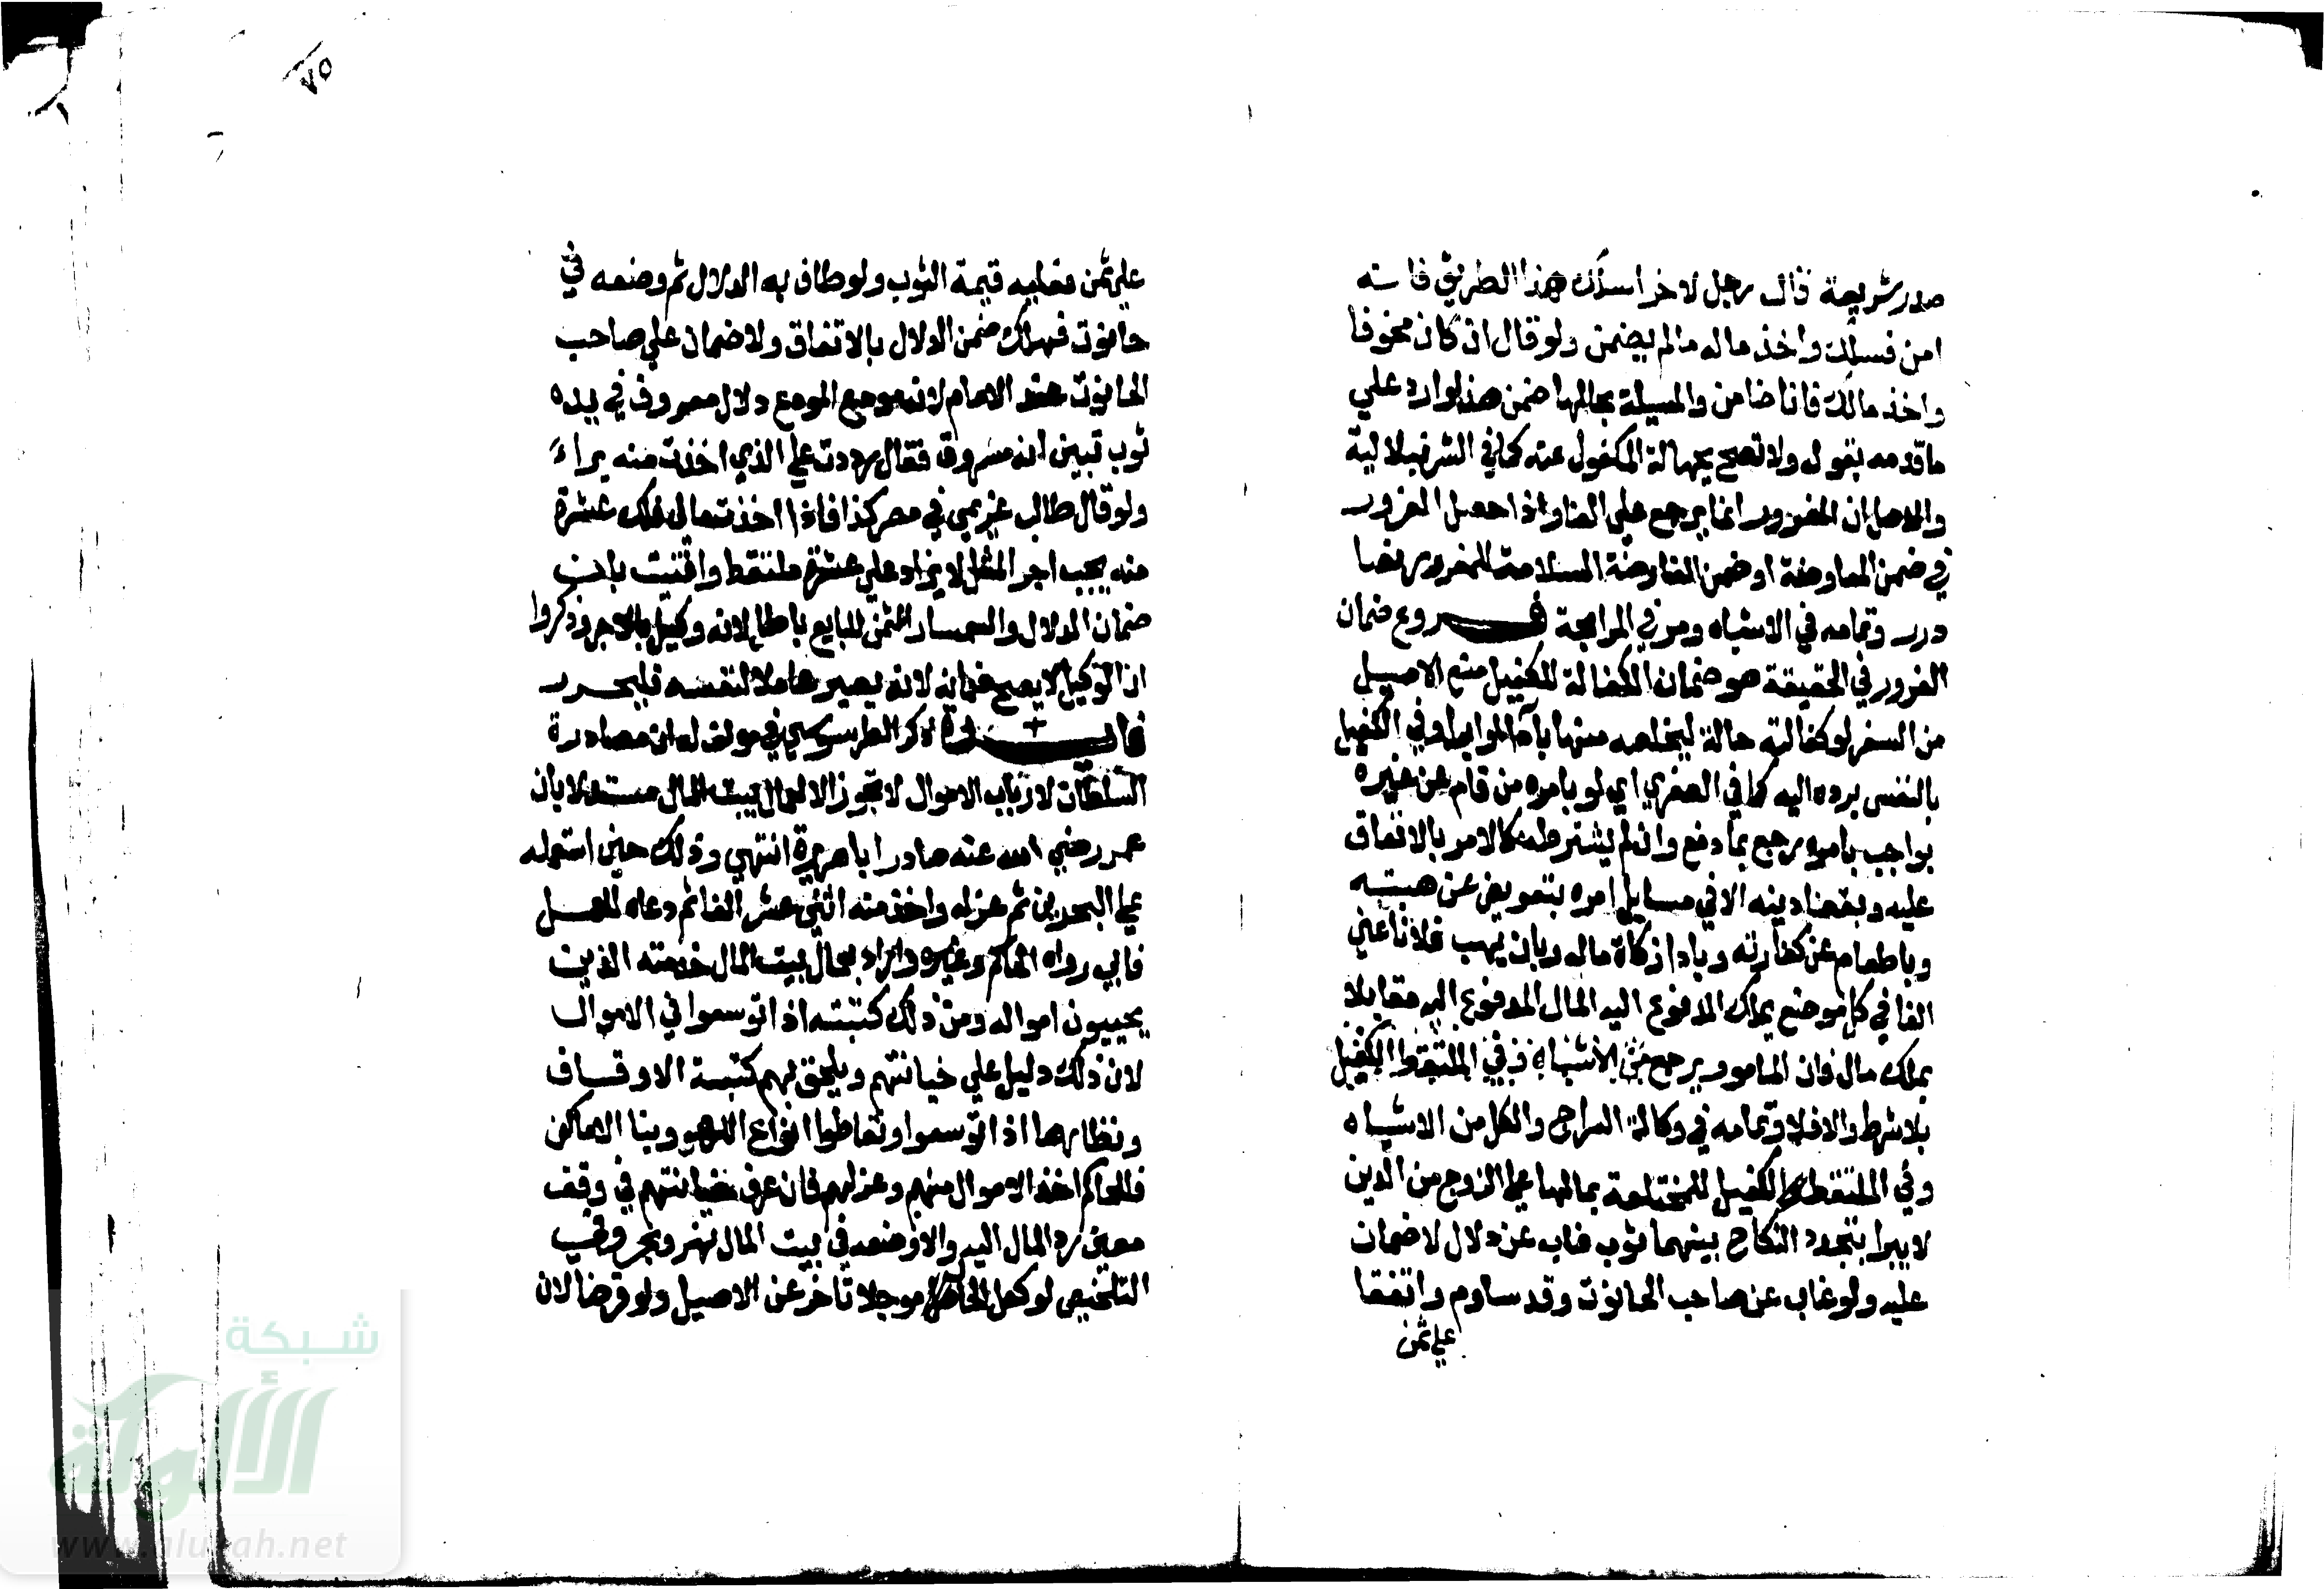 صدر شريعة قال رجل لاخر اسلك هذا الطريق فانه
امن فسلك واخذ ماله مالم يضمن ولو قال ان كان مخوفا
واخذ مالك فانا ضامن والمسيلة بحالها ضمن هذا وارد علي
ما قدمه بقوله ولا تصح بجهالة المكفول عنه كما في الشرنبلالية
والاصل ان المغرور انما يرجع علي الغار اذا حصل الغرور
في ضمن المعاوضة او ضمن الغار صفة السلامة للمغرور نصا
درر وتمامه في الاشباه ومر في المرابحة فروع ضمان
الغرور في الحقيقة هو ضمان الكفالة للكفيل منع الاصيل
من السفر لو كفالته حالة ليخلصه منها باداء او ابراء وفي الكفيل
بالنفس يرده اليه كما في الصغري اي لو بامره من قام عن غيره
بواجب بامره رجع بما دفع وان لم يشترطه كالامر بالانفاق
عليه وبقضا دينه الا في مسايل امره بتعويض عن هبته
وباطعام عن كفارته وبادا زكاة ماله وبان يهب فلانا عني
الفا في كل موضع يملك المدفوع اليه المال المدفوع اليه مقابلا
بملك مال فان المامور يرجع الكفيل
بلا شرط والا فلا وتمامه في وكالة السراج والكل من الاشباه
وفي الملتقط الكفيل للمختلعة بمالها علي الزوج من الدين
لا يبرا بتجدد النكاح بينهما ثوب غاب عن دلال لا ضمان
عليه ولو غاب عن صاحب الحانوت وقد ساوم واتفقا
علي ثمن
٧٥
علي ثمن فعليه قيمة الثوب ولو طاف به الدلال ثم وضعه في
حانوت فهلك ضمن الدلال بالاتفاق ولا ضمان علي صاحب
الحانوت عند الامام لانه مودع المودع دلال معروف في يده
ثوب تبين انه مسروق فقال رددت علي الذي اخذت منه براء
ولو قال طالب غريمي في مصر كذا فاذا اخذت مالي فلك عشرة
منه يجب اجر المثل لا يزاد علي عشرة ملتقط وافتيت بان
ضمان الدلال والسمسار الثمن للبايع باطل لانه وكيل بالاجر وذكروا
ان الوكيل لا يصح ضمانه لانه يصير عاملا لنفسه فليحرر
فايدة ذكر الطرسوسي في مولف له ان مصادرة
السلطان لارباب الاموال لا تجوز الا لعمال بيت المال مستدلا بان
عمر رضي الله عنه صادر ابا هريرة انتهي وذلك حين استعمله
علي البحرين ثم عزله واخذ منه اثني عشر الفا ثم دعاه للعمل
فابي رواه الحاكم وغيره واراد بعمال بيت المال خدمته الذين
يجبيون امواله ومن ذلك كتبته اذا توسعوا في الاموال
لان ذلك دليل علي خيانتهم ويلحق بهم كتبة الاوقاف
ونظارها اذا توسعوا وتعاطوا انواع اللهو وبنا الاماكن
فللحاكم اخذ الاموال منهم وعزلهم فان عرف خيانتهم في وقف
معين رد المال اليه والا وضعه في بيت المال نهر وبحر وفي
التلخيص لو كفل الحال موجلا تاخر عن الاصيل ولو قرضا لان